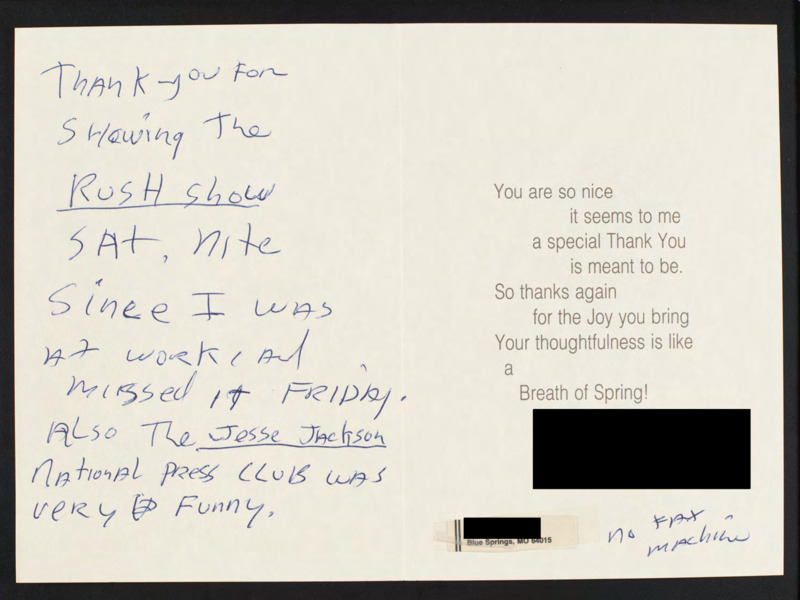 Thank-you For
Showing The
RUSH show
SAt, Nite
Since I was
At work, And
missed it FRIDAY.
Also The Jesse Jackson
National Press Club was
very Funny.
You are so nice
it seems to me
a special Thank You
is meant to be.
So thanks again
for the Joy you bring
Your thoughtfulness is like
a
Breath of Spring!
Blue Springs, MO 64015
no FAX
machine